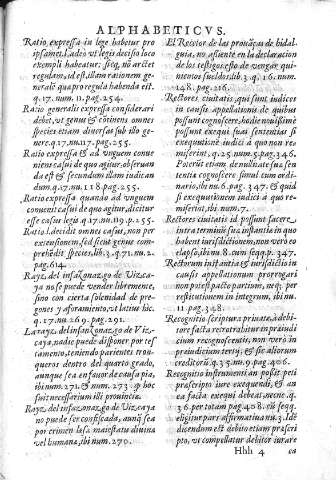 ALPHABETICVS.
Ratio expressa in lege habetur pro
ipsa.l. Adeo vt leges deciso loco
exempli habeatur: sicq, nō arctet
regulam, id est, illam rationem gene
rale qua pro regula habenda est.
q.17. num.11. pag.254.
Ratio generalis expressa considerari
debet, vt genus & cōtinens omnes
species etiam diuersas sub illo ge-
nere. q.17. nu.17. pag.255.
Ratio expressa & ad vnguem conue
niens casui de quo agitur, obseruan
da est & secundum illam iudican
dum. q.17. nu.118. pag.255.
Ratio expressa quando ad vnguem
conuenit casui de quo agitur, dicitur
esse casus legis. q.17. nu.119. p.255.
Ratio.l. decidit omnes casus, non per
extensionem, sed sicut genus com-
prehēdit species. lib.3. q.71. nu.2.
pag.614.
Rayz, del infançonazgo de Vizca-
ya no se puede vender libremente,
sino con cierta solenidad de pre-
gones y aforamento, vt latius hic.
q.17. nu.269. pag.291.
La rayz. del infançonazgo de Viz,
caya, nadie puede disponer por tes
tamento, teniendo parientes tron
queros dentro del quarto grado,
aunque sea en fauor de causa pia,
ibi num.271. & num.273. & hoc
fuit necessarium illi prouinciæ.
Rayz. del infançonazgo de Vizcaya
no puede ser confiscada, aunq sea
por crimen lesæ maiestatis diuina
vel humana, ibi num.270.
El Retor de las prouāças de hidal-
guia, no assiente en la declaracion
de los testigos esto de vengar qui-
nientos sueldos. lib.3. q.16. num.
148. pag.216.
Rectores ciuitatis qui sunt iudices
in causis appellationum de quibus
possunt cognoscere, hodie nullissime
possunt exequi suas sententias si
exequutionē iudici à quo non re
miserint. q.25. num.5. pag.346.
Poterit etiam de nullitate suæ sen
tentiæ cognoscere simul cum ordi-
nario, ibi nu.6. pag.347. & quid
si exequutionem iudici à quo re-
miserint, ibi nu.7.
Rectores ciuitatis id possunt facere
intra terminū sua instantia in quo
habent iurisdictionem, non vero eo
elapso, ibi nu.8. cum seqq. p.347.
Rectorum instantia & iurisdictio in
causis appellationum prorrogari
non potest pacto partium, neq; per
restitutionem in integrum, ibi nu.
11. pag.348.
Recognitio scripturæ priuatæ, à debi-
tore facta retrotrahitur in præiudi
cium recognoscentis, non vero in
præiudicium tertij, & sic aliorum
creditorū. q.35. nu.9. pag.406.
Recognitio instrumenti an possit peti
præscripto iure exequendi, & an
ea facta exequi debeat, necne. q.
36. per totam pag.408. cū seqq.
eligitur pars affirmatiua nu.3. Id ē
dicendum est debito etiam præscri
pto, vt compellatur debitor iurare
Hhh 4 ea